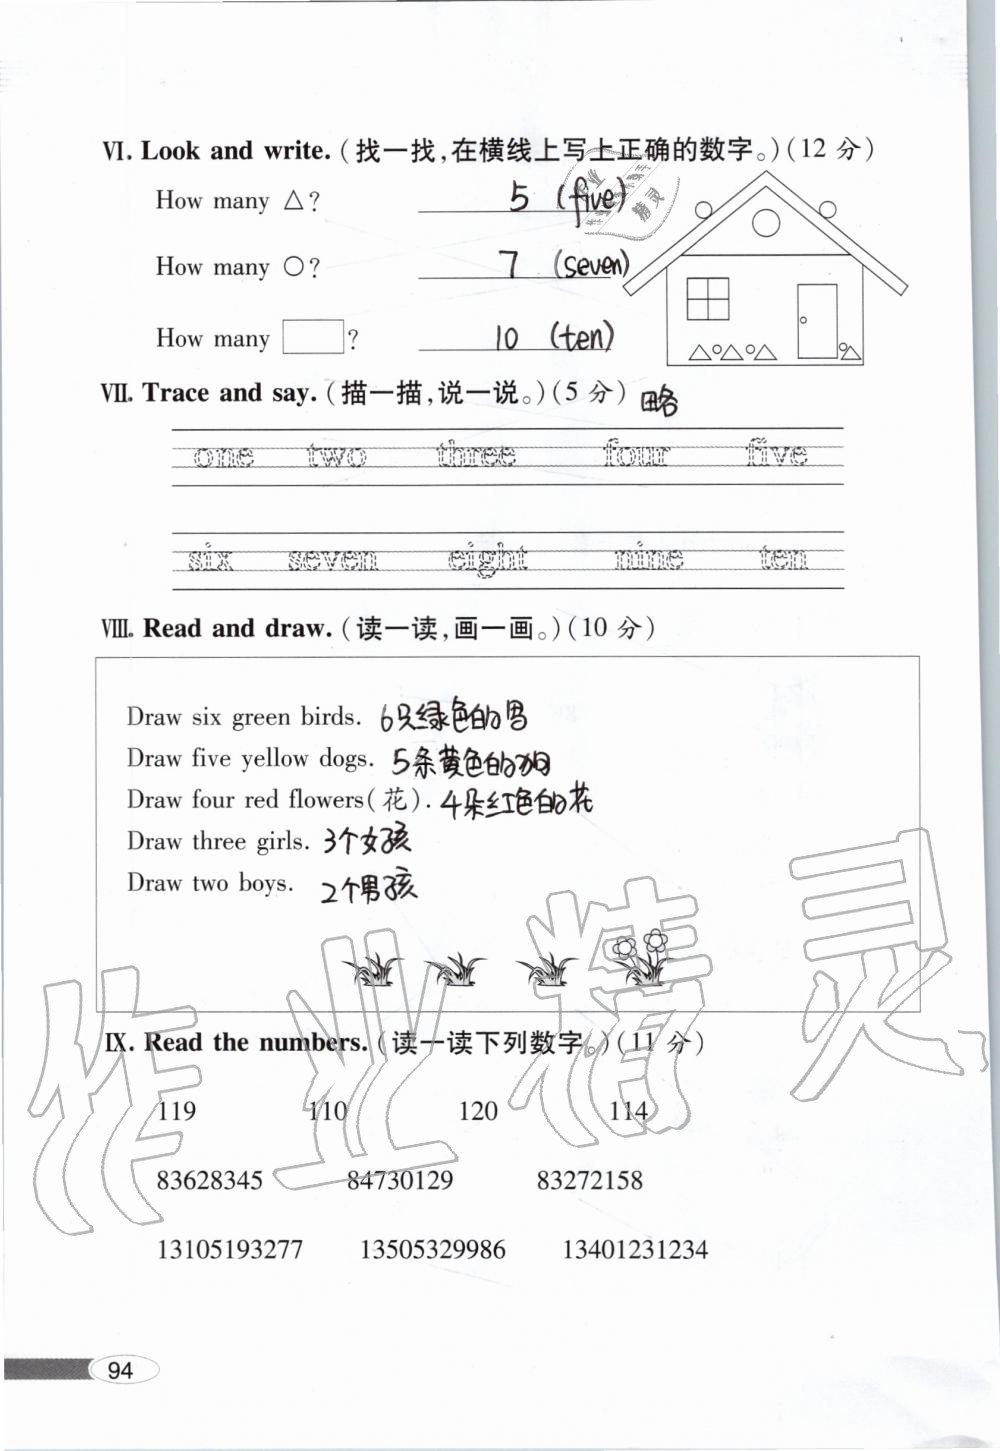 Ⅵ. Look and write.(找一找,在横线上写上正确的数字。)(12 分)
How many △? 5 (five)
How many ○? 7 (seven)
How many □? 10 (ten)
Ⅶ. Trace and say.(描一描,说一说。)(5 分) 略
one two three four five
six seven eight nine ten
Ⅷ. Read and draw.(读一读,画一画。)(10 分)
Draw six green birds. 6只绿色的鸟
Draw five yellow dogs. 5条黄色的狗
Draw four red flowers(花). 4朵红色的花
Draw three girls. 3个女孩
Draw two boys. 2个男孩
作业精灵
Ⅸ. Read the numbers.(读一读下列数字。)(11 分)
119 110 120 114
83628345 84730129 83272158
13105193277 13505329986 13401231234
94